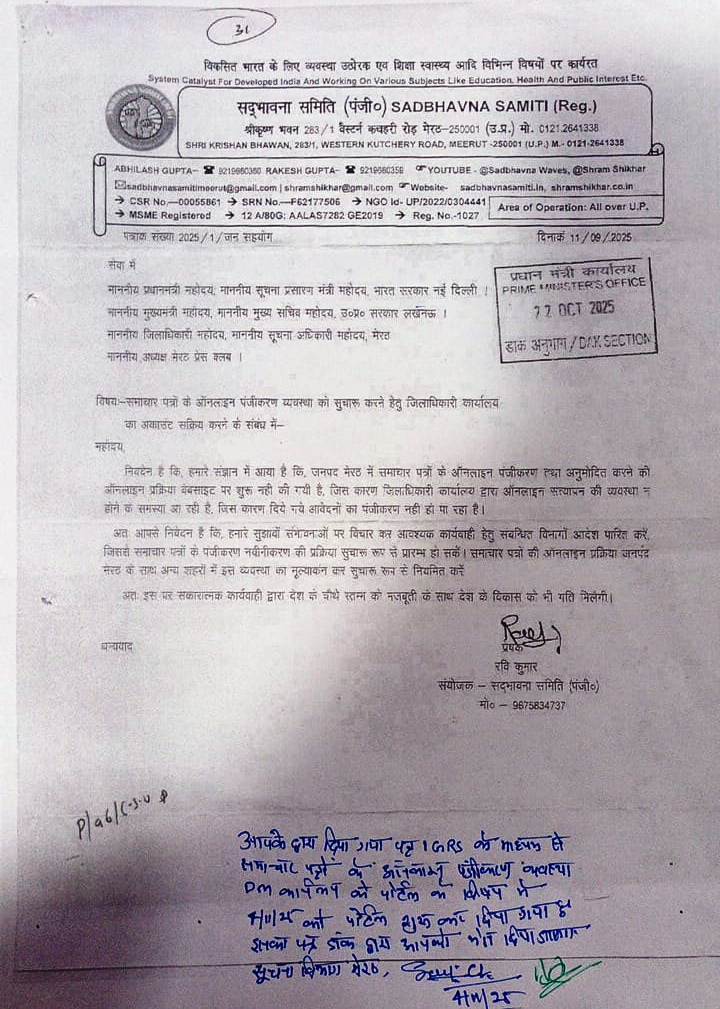 31
विकसित भारत के लिए व्यवस्था उत्प्रेरक एव शिक्षा स्वास्थ्य आदि विभिन्न विषयों पर कार्यरत
System Catalyst For Developed India And Working On Various Subjects Like Education, Health And Public Interest Etc.
सद्भावना समिति (पंजी०) SADBHAVNA SAMITI (Reg.)
श्रीकृष्ण भवन 283/1 वैस्टर्न कचहरी रोड़ मेरठ-250001 (उ.प्र.) मो. 0121.2641338
SHRI KRISHAN BHAWAN, 283/1, WESTERN KUTCHERY ROAD, MEERUT -250001 (U.P.) M.- 0121-2641338
ABHILASH GUPTA- ☎ 9219660360 RAKESH GUPTA- ☎ 9219660359 YOUTUBE - @Sadbhavna Waves, @Shram Shikhar
sadbhavnasamitimeerut@gmail.com | shramshikhar@gmail.com Website- sadbhavnasamiti.in, shramshikhar.co.in
→ CSR No.—00055861 → SRN No.—F62177506 → NGO Id- UP/2022/0304441
→ MSME Registered → 12 A/80G: AALAS7282 GE2019 → Reg. No.-1027
Area of Operation: All over U.P.
पत्रांक संख्या 2025/1/जन सहयोग
दिनाकं 11/09/2025
सेवा में
माननीय प्रधानमन्त्री महोदय, माननीय सूचना प्रसारण मंत्री महोदय, भारत सरकार नई दिल्ली ।
माननीय मुख्यमंत्री महोदय, माननीय मुख्य सचिव महोदय, उ०प्र० सरकार लखनऊ ।
माननीय जिलाधिकारी महोदय, माननीय सूचना अधिकारी महोदय, मेरठ
माननीय अध्यक्ष मेरठ प्रेस क्लब ।
प्रधान मंत्री कार्यालय
PRIME MINISTER'S OFFICE
OCT 2025
डाक अनुभाग/DAK SECTION
विषय:–समाचार पत्रों के ऑनलाइन पंजीकरण व्यवस्था को सुचारू करने हेतु जिलाधिकारी कार्यालय
का अकाउंट सक्रिय करने के संबंध में–
महोदय,
निवेदन है कि, हमारे संज्ञान में आया है कि, जनपद मेरठ में समाचार पत्रों के ऑनलाइन पंजीकरण तथा अनुमोदित करने की
ऑनलाइन प्रक्रिया वेबसाइट पर शुरू नही की गयी है, जिस कारण जिलाधिकारी कार्यालय द्वारा ऑनलाइन सत्यापन की व्यवस्था न
होने के समस्या आ रही है, जिस कारण दिये गये आवेदनों का पंजीकरण नही हो पा रहा है।
अतः आपसे निवेदन है कि, हमारे सुझावों संभावनाओं पर विचार कर आवश्यक कार्यवाही हेतु संबन्धित विभागों आदेश पारित करें,
जिससे समाचार पत्रों के पंजीकरण नवीनीकरण की प्रक्रिया सुचारू रूप से प्रारम्भ हो सकें। समाचार पत्रों की ऑनलाइन प्रक्रिया जनपद
मेरठ के साथ अन्य शहरों में इस व्यवस्था का मूल्यांकन कर सुचारू रूप से नियमित करें
अतः इस पर सकारात्मक कार्यवाही द्वारा देश के चौथे स्तम्भ को मजबूती के साथ देश के विकास को भी गति मिलेगी।
धन्यवाद
प्रेषक
रवि कुमार
संयोजक – सद्भावना समिति (पंजी०)
मो० – 9675834737
आपके द्वारा दिया गया पत्र IGRS के माध्यम से
समाचार पत्रों के ऑनलाइन पंजीकरण व्यवस्था
DM कार्यालय को पोर्टल के विषय में
4/11/25 को पोर्टल शुरू कर दिया गया है
इसका पत्र डाक द्वारा आपको भेज दिया जाएगा
सूचना विभाग मेरठ,
4/11/25